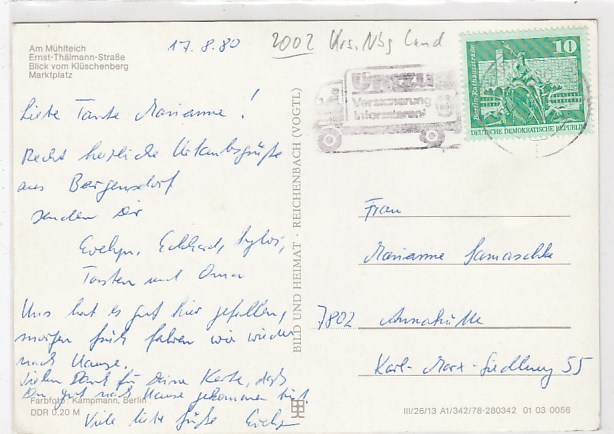 Am Mühlteich
Ernst-Thälmann-Straße
Blick vom Klüschenberg
Marktplatz
17.8.80
2002 Krs. Nbg Land
Liebe Tante Marianne!
Recht herzliche Urlaubsgrüße
aus Bergensdorf
senden Dir
Evelyn, Eckhard, Sylvi,
Torsten und Oma
Uns hat es gut hier gefallen,
morgen früh fahren wir wieder
nach Hause.
Vielen Dank für Deine Karte, daß
Du gut nach Hause gekommen bist.
Viele liebe Grüße Evelyn
Farbfoto: Kampmann, Berlin
DDR 0,20 M
BILD UND HEIMAT · REICHENBACH (VOGTL)
Umzug
Versicherung
informieren!
10
DEUTSCHE DEMOKRATISCHE REPUBLIK
Frau
Marianne Samaschke
7802 Annahütte
Karl-Marx-Siedlung 55
III/26/13 A1/342/78-280342 01 03 0056